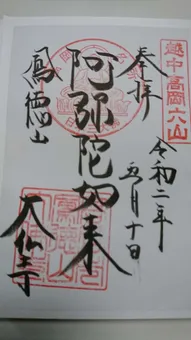 越中高岡六山
奉拝
令和二年
五月十日
阿弥陀如来
鳳徳山
大仏寺